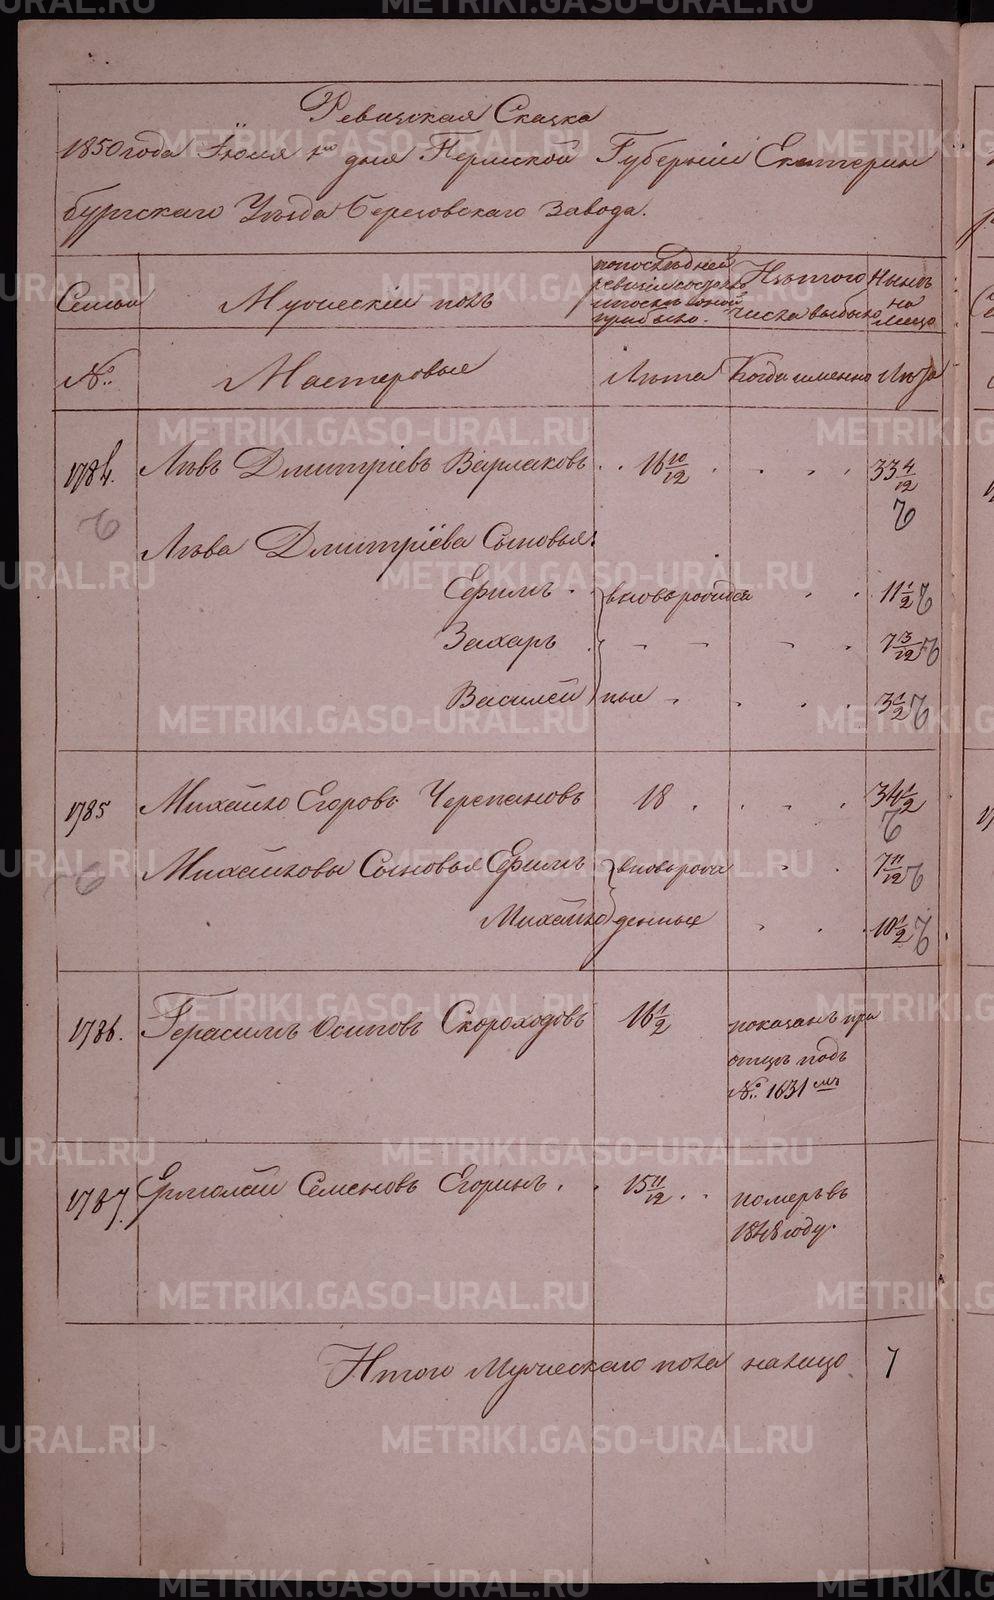 Ревижская Сказка
1850 года Июля 1го дня Пермской Губерніи Екатерин
бургскаго Уѣзда Березовскаго Завода.
Семьи
Мужескій полъ
попослѣдней ревизіи состояло и после оной прибыло.
Изътого числа выбыло
Нынѣ на лицо
№:
Мастеровые
Лѣта
Когда именно
Лѣта
1784. Лѣвъ Дмитріевъ Варлаковъ 16 10/12 33 4/12
Лѣва Дмитріева Сыновья:
Ефимъ вновьрожден 11 1/2
Захаръ 7 13/12
Василей ные 3 1/2
1785 Михайло Егоровъ Черепановъ 18 34 1/2
Михайловы Сыновья Ефимъ вновьрож 7 11/12
Михайло денные 10 1/2
1786. Герасимъ Осиповъ Скороходовъ 16 1/2 показанъ при
отцѣ подъ
№: 1631 мъ
1787. Ермолай Семеновъ Егоринъ. 15 11/12 померъ въ
1848 году.
Итого Мужескаго пола налицо 7
METRIKI.GASO-URAL.RU